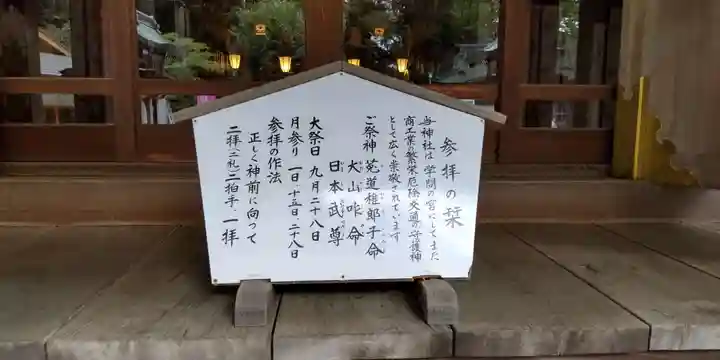 参拝の栞
当神社は学問の宮にしてまた
商工業の繁栄厄除交通の守護神
として広く崇敬されています
ご祭神 菟道稚郎子命
大山咋命
日本武尊
大祭日 九月二十八日
月参り 一日、十五日、二十八日
参拝の作法
正しく神前に向って
二拝(二礼)二拍手、一拝